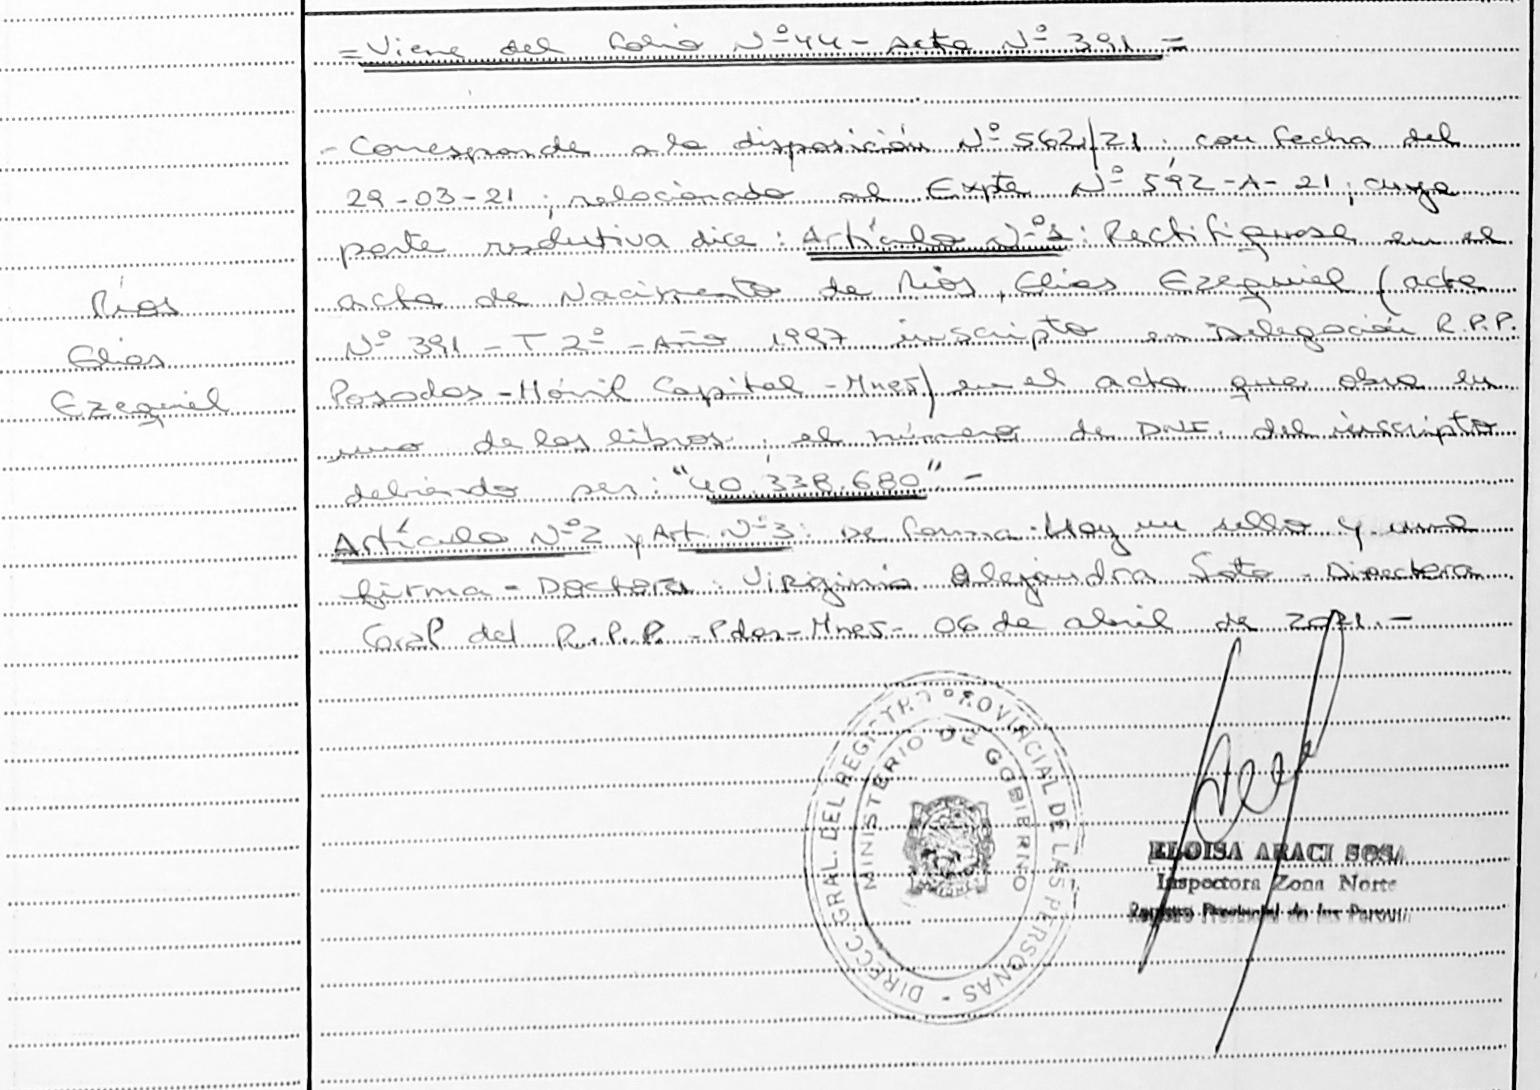 = Viene del Folio Nº 44 - Acta Nº 391 =
- Corresponde a la disposición Nº 562/21; con fecha del
29-03-21; relacionado al Expte Nº 592-A-21; cuya
parte resolutiva dice: Artículo Nº 1: Rectifíquese en el
acta de Nacimiento de Ríos, Elias Ezequiel (acta
Nº 391 - T 2º - Año 1997 inscripto en Delegación R.P.P.
Posadas - Móvil Capital - Mnes) en el acta que obra en
uno de los libros, el número de DNI. del inscripto
debiendo ser: "40.338.680" -
Artículo Nº 2 y Art. Nº 3: De forma. Hay un sello y una
firma = Doctora: Virginia Alejandra Soto - Directora
Gral del R.P.P. - Pdas - Mnes - 06 de abril de 2021. -
Ríos
Elias
Ezequiel
DIRECC. GRAL. DEL REGISTRO PROVINCIAL DE LAS PERSONAS -
MINISTERIO DE GOBIERNO
ELOISA ARACI SOSA
Inspectora Zona Norte
Registro Provincial de las Personas